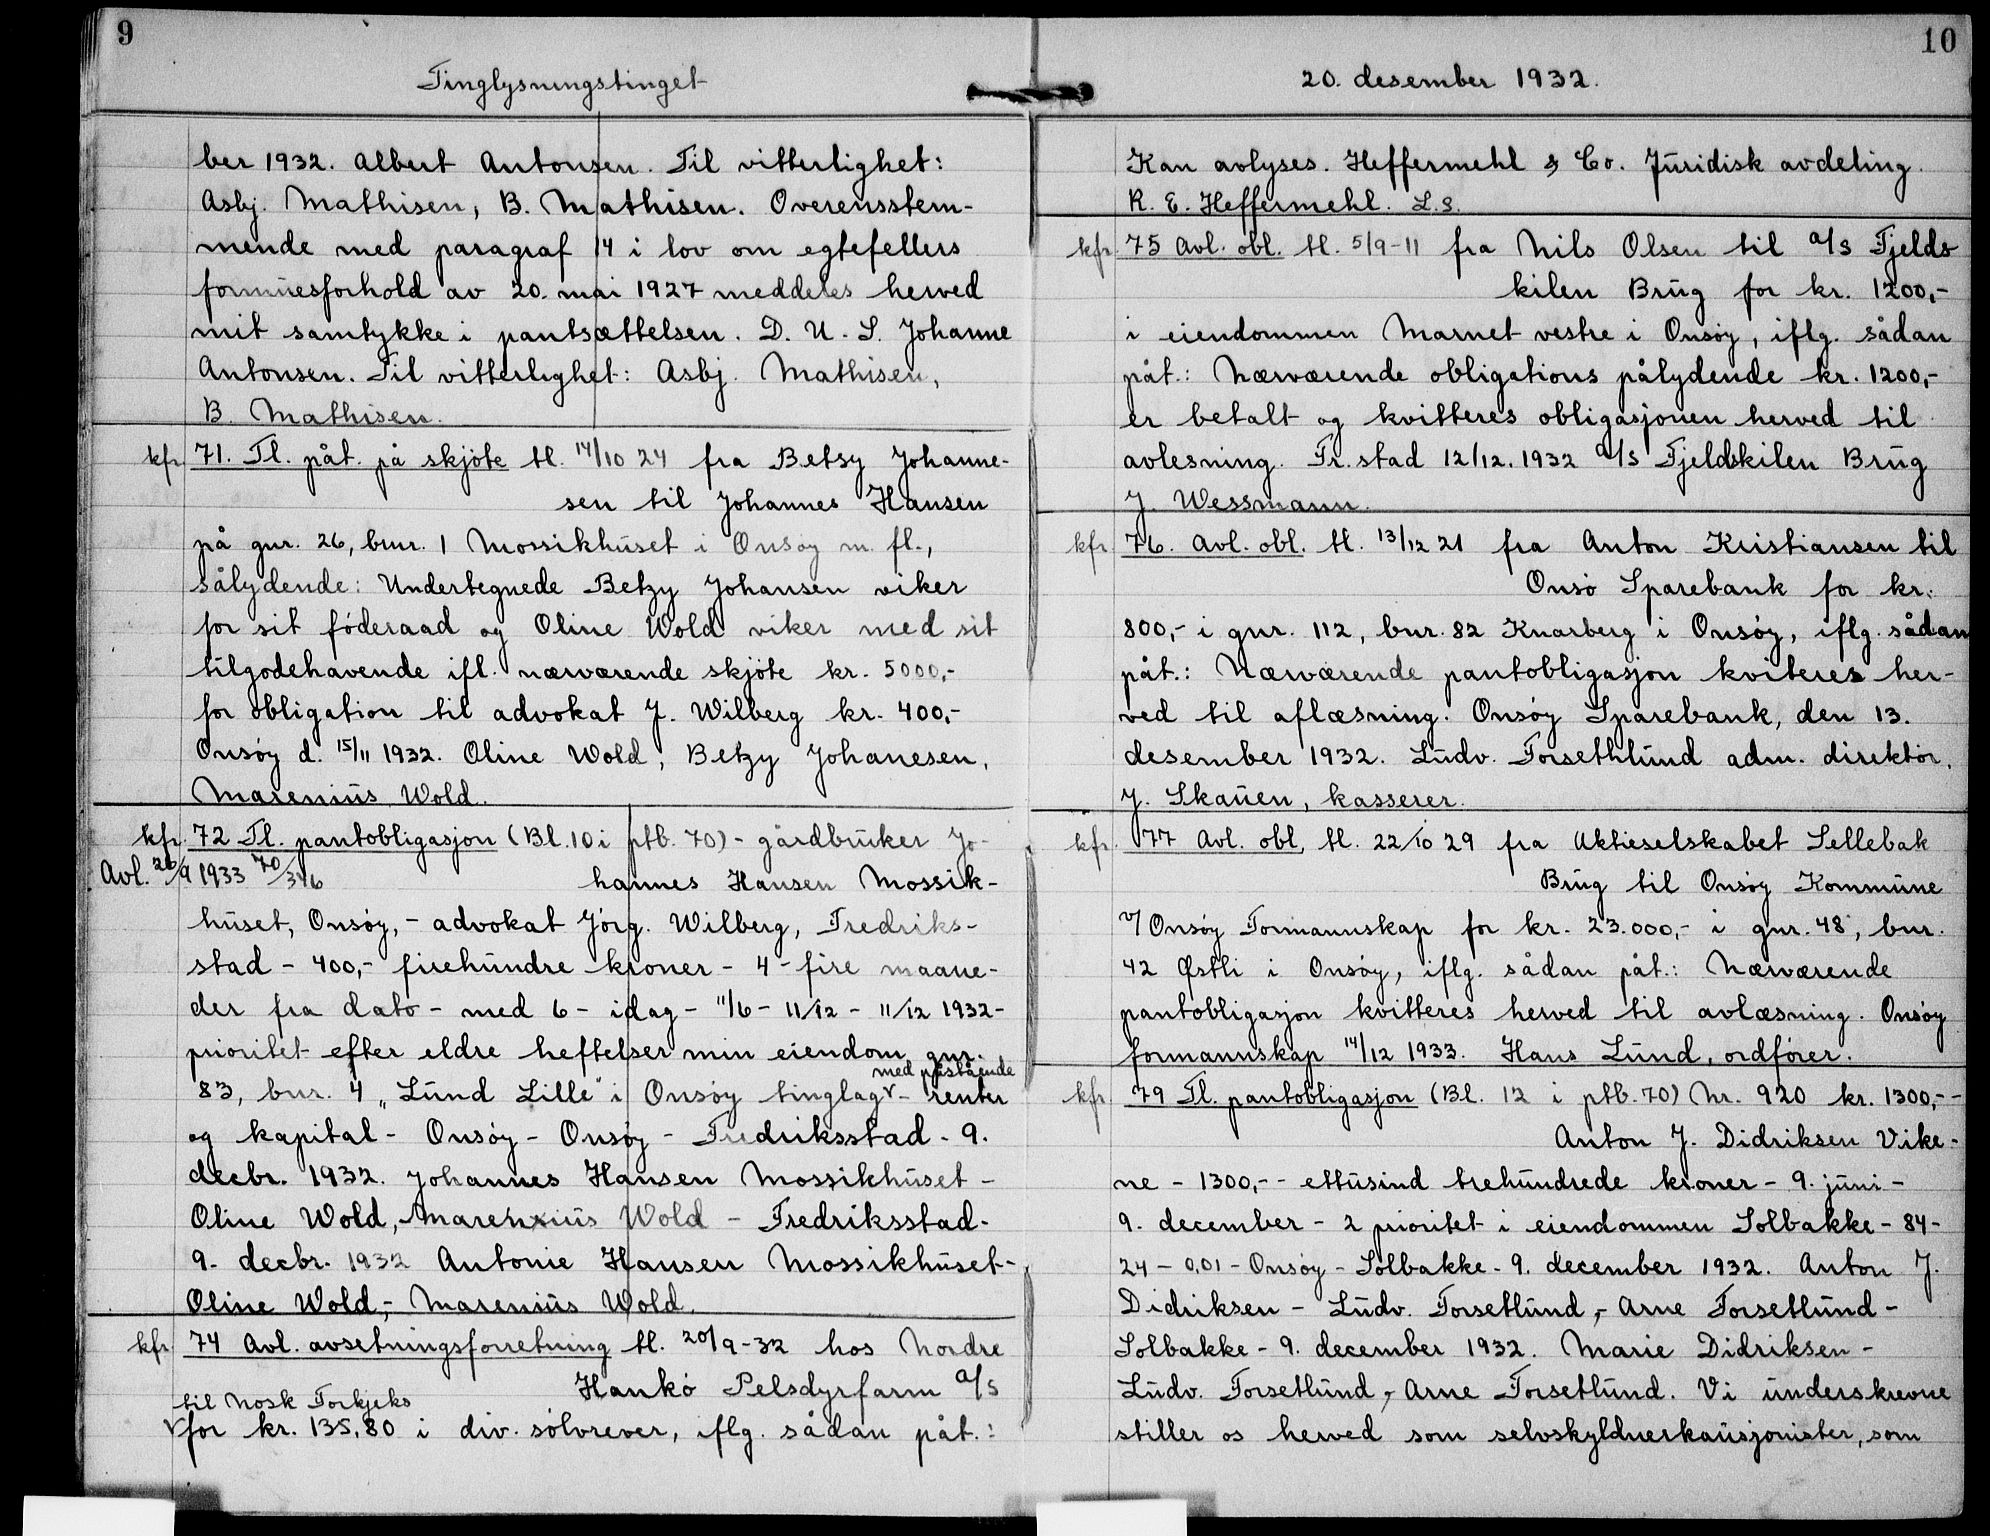 9
Tinglysningstinget
ber 1932. Albert Antonsen. Til vitterlighet:
Asbj. Mathisen, B. Mathisen. Overensstem-
mende med paragraf 14 i lov om egtefellers
formuesforhold av 20. mai 1927 meddeles herved
mit samtykke i pantsættelsen. D. U. S. Johanne
Antonsen. Til vitterlighet: Asbj. Mathisen,
B. Mathisen.
kfr. 71. Tl. påt. på skjöte tl. 14/10 24 fra Betsy Johanne-
sen til Johannes Hansen
på gnr. 26, bnr. 1 Mossikhuset i Onsøy m. fl.,
sålydende: Undertegnede Betzy Johansen viker
for sit föderaad og Oline Wold viker med sit
tilgodehavende ifl. nærværende skjöte kr. 5000,-
for obligation til advokat J. Wilberg kr. 400,-
Onsøy d. 15/11 1932. Oline Wold, Betzy Johanesen,
Marenius Wold.
kfr. 72 Tl. pantobligasjon (Bl. 10 i ptb. 70) - gårdbruker Jo-
Avl. 26/9 1933 70/346
hannes Hansen Mossik-
huset, Onsøy, - advokat Jörg. Wilberg, Fredriks-
stad - 400,- firehundre kroner - 4 - fire maane-
der fra dato - med 6 - idag - 11/6 - 11/12 - 11/12 1932 -
prioritet efter eldre heftelser min eiendom gnr.
med påstående
83, bnr. 4 „Lund Lille" i Onsøy tinglag v - renter
og kapital - Onsøy - Onsøy - Fredriksstad - 9.
decbr. 1932. Johannes Hansen Mossikhuset -
Oline Wold, - Marenxius Wold - Fredriksstad -
9. decbr. 1932 Antonie Hansen Mossikhuset -
Oline Wold, - Marenius Wold.
kfr. 74 Avl. avsetningsforretning tl. 20/9-32 hos Nordre
Hankö Pelsdyrfarm a/s
til Nosk Torkjeks
v for kr. 135,80 i div. sölvrever, iflg. sådan påt.:
10
20. desember 1932.
Kan avlyses. Heffermehl & Co. Juridisk avdeling.
R. E. Heffermehl. L.S.
kfr. 75 Avl. obl. tl. 5/9-11 fra Nils Olsen til a/s Fjelds
kilen Brug for kr. 1200,-
i eiendommen Marnet vestre i Onsøy, iflg. sådan
påt.: Nærværende obligations pålydende kr. 1200,-
er betalt og kvitteres obligasjonen herved til
avlesning. Fr. stad 12/12. 1932 a/s Fjeldskilen Brug
J. Wessmann.
kfr. 76. Avl. obl. tl. 13/12 21 fra Anton Kristiansen til
Onsö Sparebank for kr.
800,- i gnr. 112, bnr. 82 Knarberg i Onsøy, iflg. sådan
påt.: Nærværende pantobligasjon kviteres her-
ved til aflæsning. Onsøy Sparebank, den 13.
desember 1932. Ludv. Forsethlund adm. direktör.
J. Skauen, kasserer.
kfr. 77 Avl. obl. tl. 22/10 29 fra Aktieselskabet Sellebak
Brug til Onsøy Kommune
v/ Onsøy Formannskap for kr. 23.000,- i gnr. 48, bnr.
42 Østli i Onsøy, iflg. sådan påt.: Nærværende
pantobligasjon kvitteres herved til avlæsning. Onsøy
formannskap 14/12 1933. Hans Lund, ordförer.
kfr. 79 Tl. pantobligasjon (Bl. 12 i ptb. 70) Nr. 920 kr. 1300,- -
Anton J. Didriksen Vike-
ne - 1300,- - ettusind trehundrede kroner - 9. juni -
9. december - 2 prioritet i eiendommen Solbakke - 84 -
24 - 0,01 - Onsøy - Solbakke - 9. december 1932. Anton J.
Didriksen - Ludv. Forsetlund, - Arne Forsetlund -
Solbakke - 9. december 1932. Marie Didriksen -
Ludv. Forsetlund, - Arne Forsetlund. Vi underskrevne
stiller os herved som selvskyldnerkausjonister, som